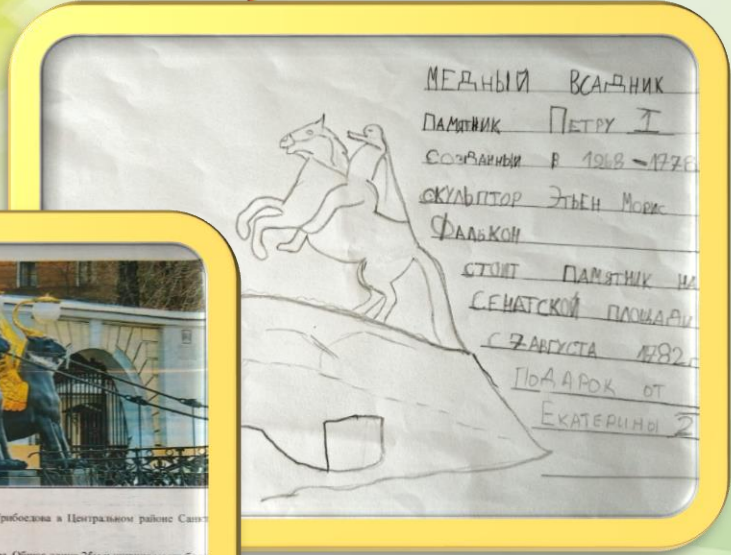 МЕДНЫЙ ВСАДНИК
ПАМЯТНИК ПЕТРУ I
СОЗДАННЫЙ В 1968-1778
СКУЛЬПТОР ЭТЬЕН МОРИС
ФАЛЬКОН
СТОИТ ПАМЯТНИК НА
СЕНАТСКОЙ ПЛОЩАДИ
С 7 АВГУСТА 1782 г
ПОДАРОК ОТ
ЕКАТЕРИНЫ 2
рибоедова в Центральном районе Санкт